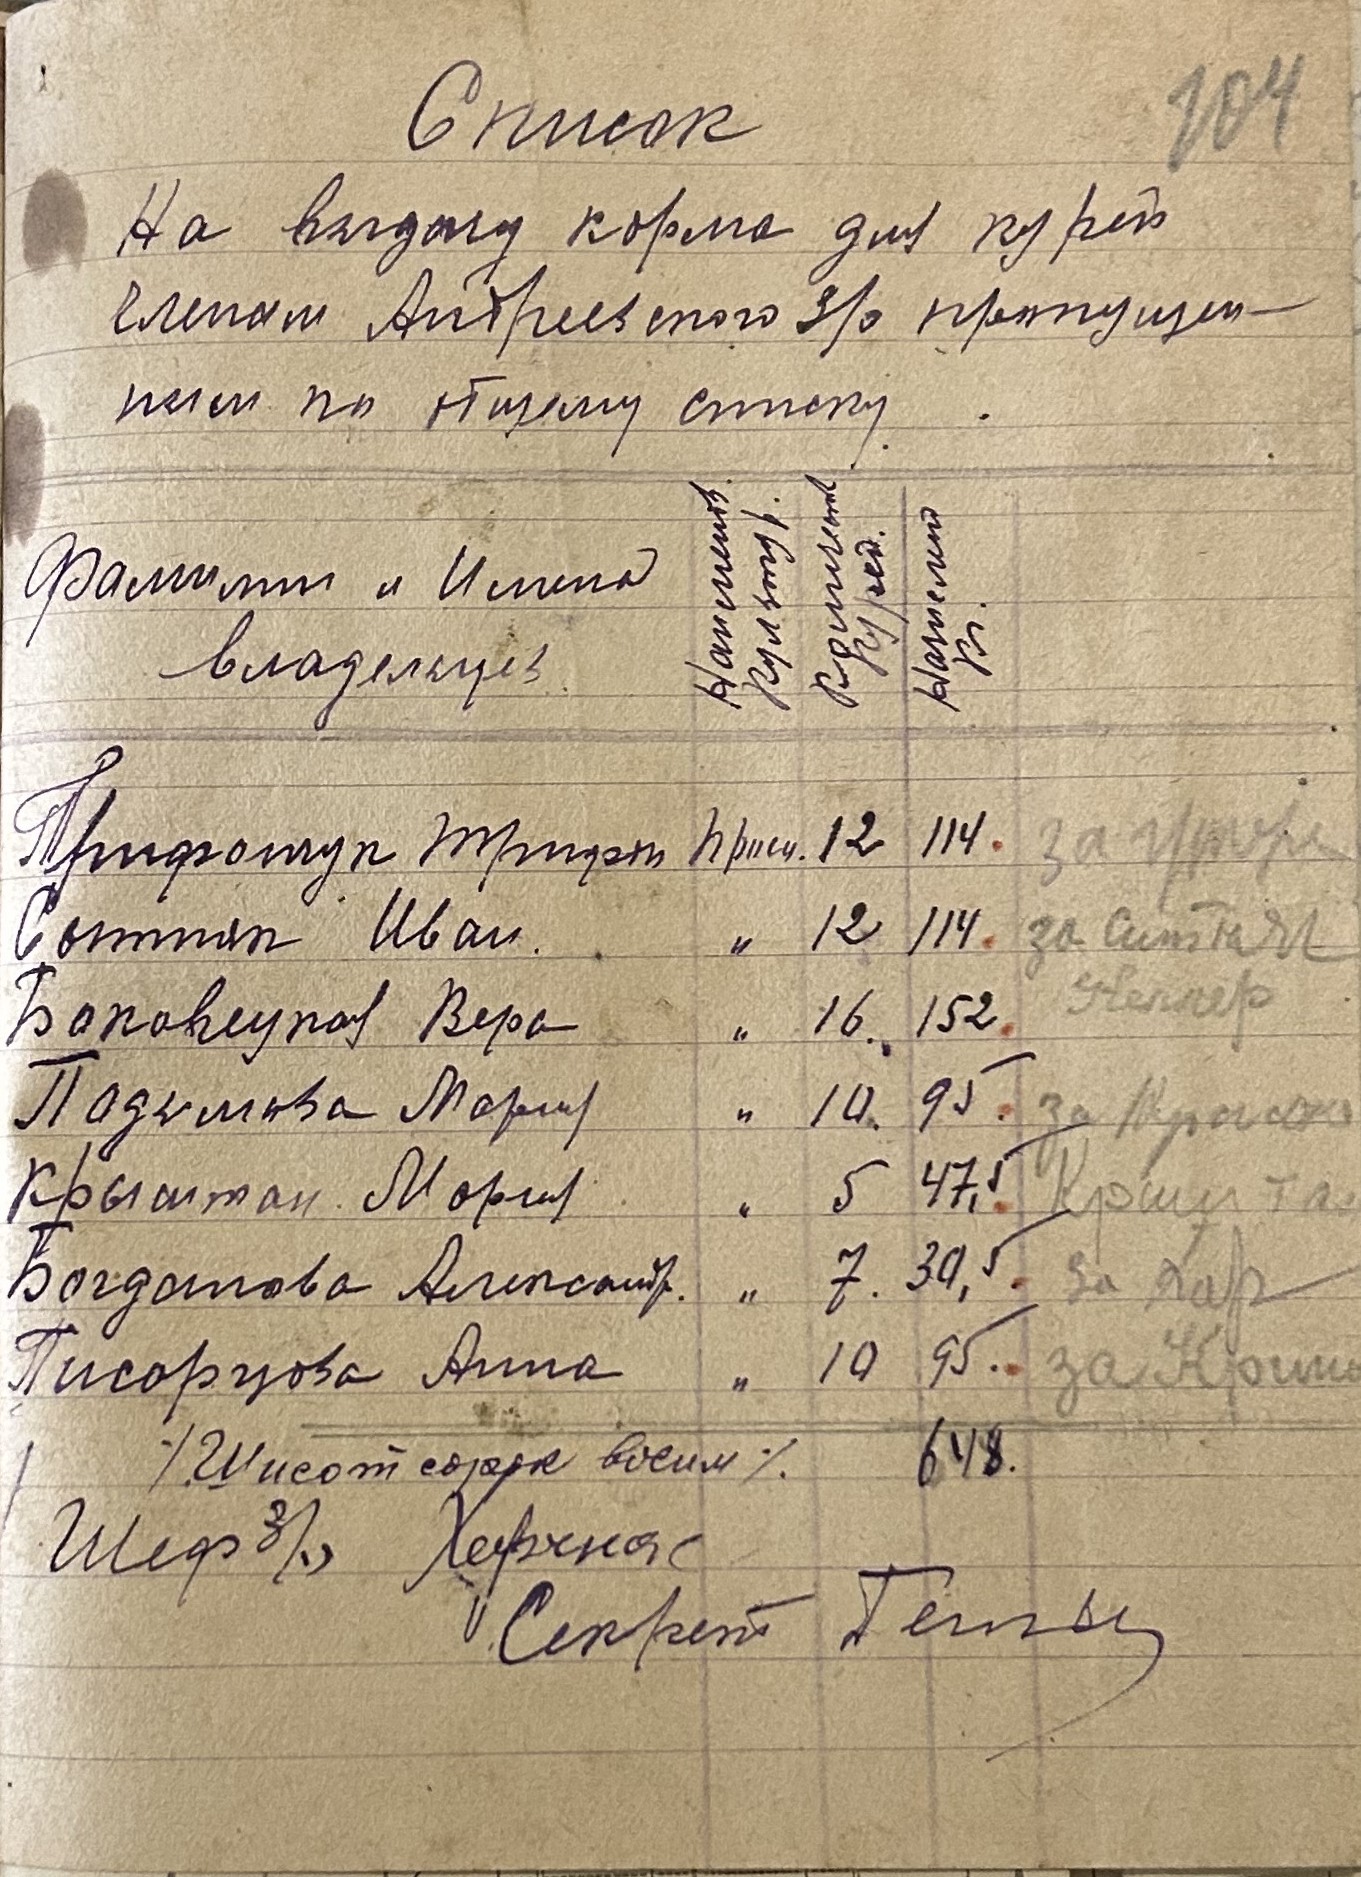 104
Список
На выдачу корма для курей
членам Андреевского з/о пропущен-
ным по общему списку.
Фамилии и Имена
владельцев
Наименов.
культур.
Количество
курей.
Начислено
кг.
Трифончук Трифон Просо. 12 114. за
Сотник Иван. " 12 114. за
" 16. 152.
Подымова Мария " 10. 95. за
Крыштан Мария " 5 47,5.
Богданова Александр. " 7. 30,5. за
Писарцова Анна " 10 95. за
/.Шисот сорок восим/. 648.
Шеф з/о
Секрет